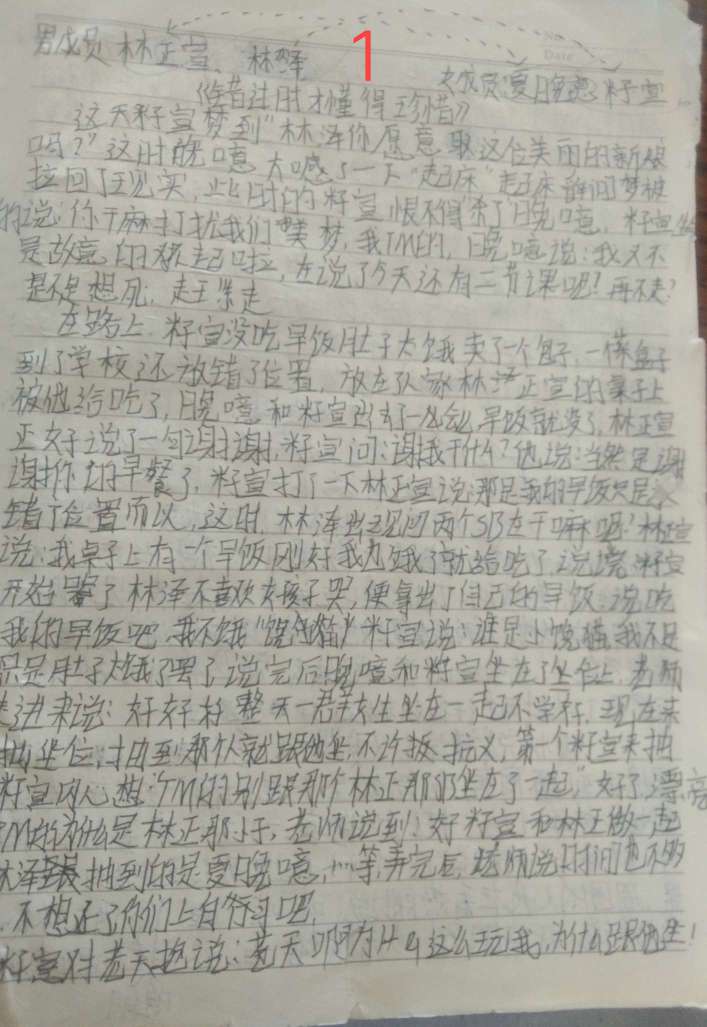 1
No.
Date
男成员 林正宣、林泽
女成员:夏晚噫 籽宣
《错过用才懂得珍惜》
这天籽宣梦到“林泽你愿意取这位美丽的新娘
吗?”这时晚噫大喊了一下“起床”起床 瞬间梦被
拉回了现实,此时的籽宣恨不得杀了晚噫,籽宣
的说:你干麻打扰我们美梦,我TM的,晚噫说:我又不
是故意的 起啦,在说了今天还有二节课呢!再不走?
是不是想死,赶紧走
在路上 籽宣没吃早饭肚子太饿卖了一个包子,一
到了学校还放错了位置,放在队家林正宣的桌子上
被他给吃了,晚噫和籽宣出去了一么么早饭就没了,林正宣
正好说了一句谢谢,籽宣问:谢我干什么?他说:当然是谢
谢你的早餐了,籽宣打了一下林正宣说:那是我的早饭只是
错了位置而以,这时,林泽出现问两个SB在干嘛呢?林正宣
说:我桌子上有一个早饭刚好我也饿了就给吃了,说完籽宣
开始哭了林泽不喜欢女孩子哭,便拿出了自己的早饭:说吃
我的早饭吧,我不饿“馋猫”籽宣说:谁是小馋猫,我不是
只是肚子太饿了罢了,说完后晚噫和籽宣坐在了坐位上 老师
走进来说:好好好 整天一群女生坐在一起不学好,现在来
抽坐位:抽到那个人就跟他坐,不许板抗义,第一个籽宣来抽
籽宣内心想:“TM的别跟那个林正那坐在了一起”好了,漂亮
TM的为什么是林正那小子,老师说到:好籽宣和林正做一起
林泽抽到的是夏晚噫,……等,弄完后,老师说时间也不够
,不想还了你们上自个习吧,
籽宣对老天抱说:老天啊为什么这么玩我,为什么跟他坐!